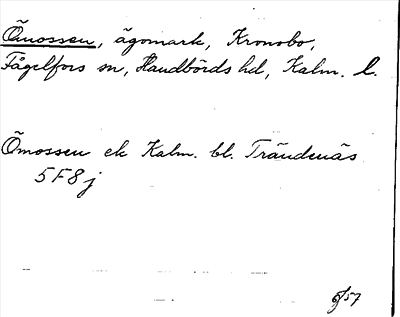 Ömossen, ägomark, Kronobo,
Fågelfors sn, Handbörds hd, Kalm. l.
Ömossen ek Kalm. bl. Trändenäs
5F8j
6/57